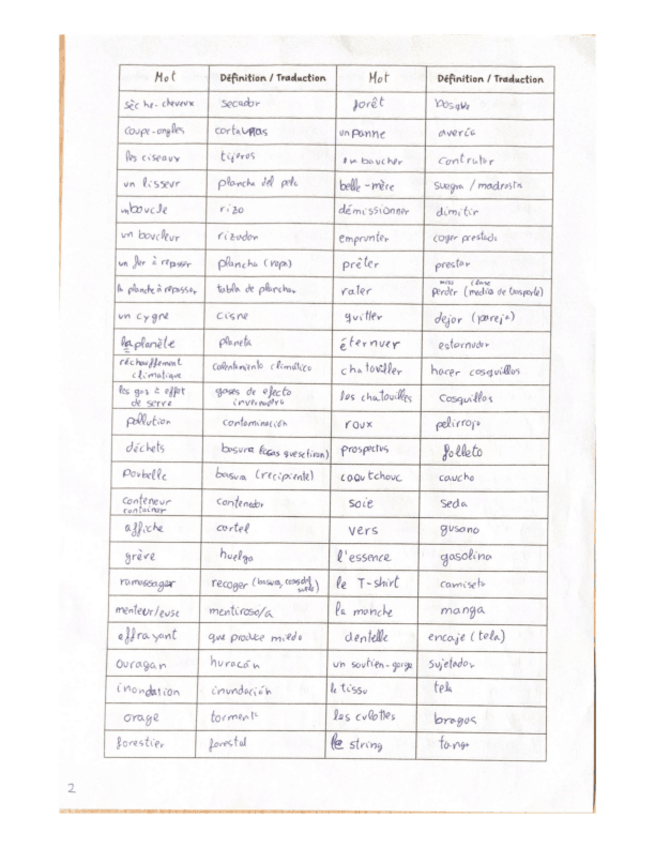 Mot Définition / Traduction Mot Définition / Traduction
sèche-cheveux secador forêt bosque
coupe-ongles cortauñas un panne avería
les ciseaux tijeras embaucher contratar
un lisseur plancha del pelo belle-mère suegra / madrastra
boucle rizo démissionner dimitir
un boucleur rizador emprunter coger prestado
un fer à repasser plancha (ropa) prêter prestar
la planche à repasser tabla de planchar rater perder (medio de transporte)
un cygne cisne quitter dejar (pareja)
la planète planeta éternuer estornudar
réchauffement climatique calentamiento climático chatouiller hacer cosquillas
les gas à effet de serre gases de efecto invernadero les chatouilles cosquillas
pollution contaminación roux pelirrojo
déchets basura (cosas que se tiran) prospectus folleto
poubelle basura (recipiente) caoutchouc caucho
conteneur container contenedor soie seda
affiche cartel vers gusano
grève huelga l'essence gasolina
ramassager recoger (basura, cosas del suelo) le T-shirt camiseta
menteur/euse mentiroso/a la manche manga
effrayant que produce miedo dentelle encaje (tela)
ouragan huracán un soutien-gorge sujetador
inondation inundación le tissu tela
orage tormenta les culottes bragas
forestier forestal le string tanga
2